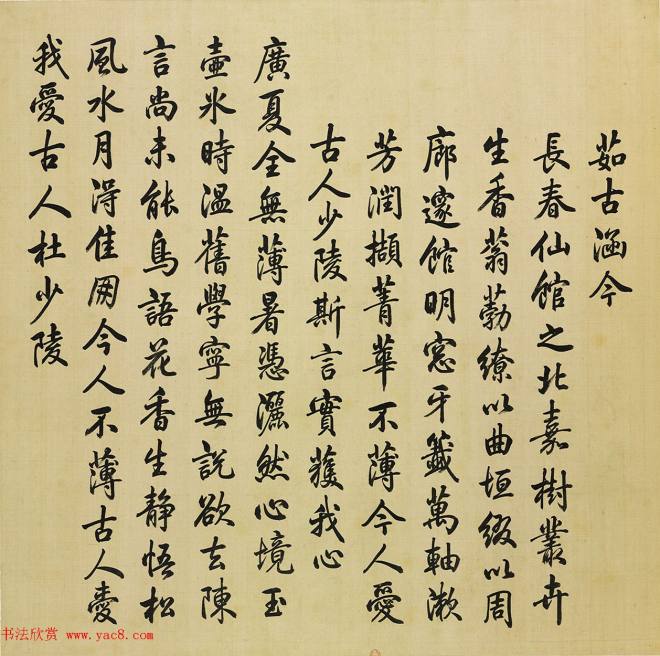 茹古涵今
長春仙館之北嘉樹叢卉
生香蓊葧繚以曲垣綴以周
廊邃館明窓牙籤萬軸漱
芳潤擷菁華不薄今人愛
古人少陵斯言實獲我心
廣夏全無薄暑憑灑然心境玉
壺冰時溫舊學寧無說欲去陳
言尚未能鳥語花香生静悟松
風水月得佳朋今人不薄古人愛
我愛古人杜少陵
书法欣赏 www.yac8.com